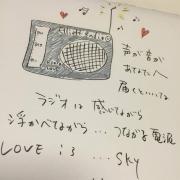 声が音が
あなたへ
届くといいな
ラジオは 感じながら
浮かべながら … つながる電波
LOVE is … sky